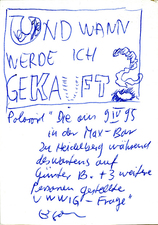 UND WANN
WERDE ICH
GEKAUFT?
"Die am 9 IV 95
in der Max-Bar
zu Heidelberg während
des wartens auf
Günter B. + 3 weitere
Personen gestellte
UWWIG-Frage"